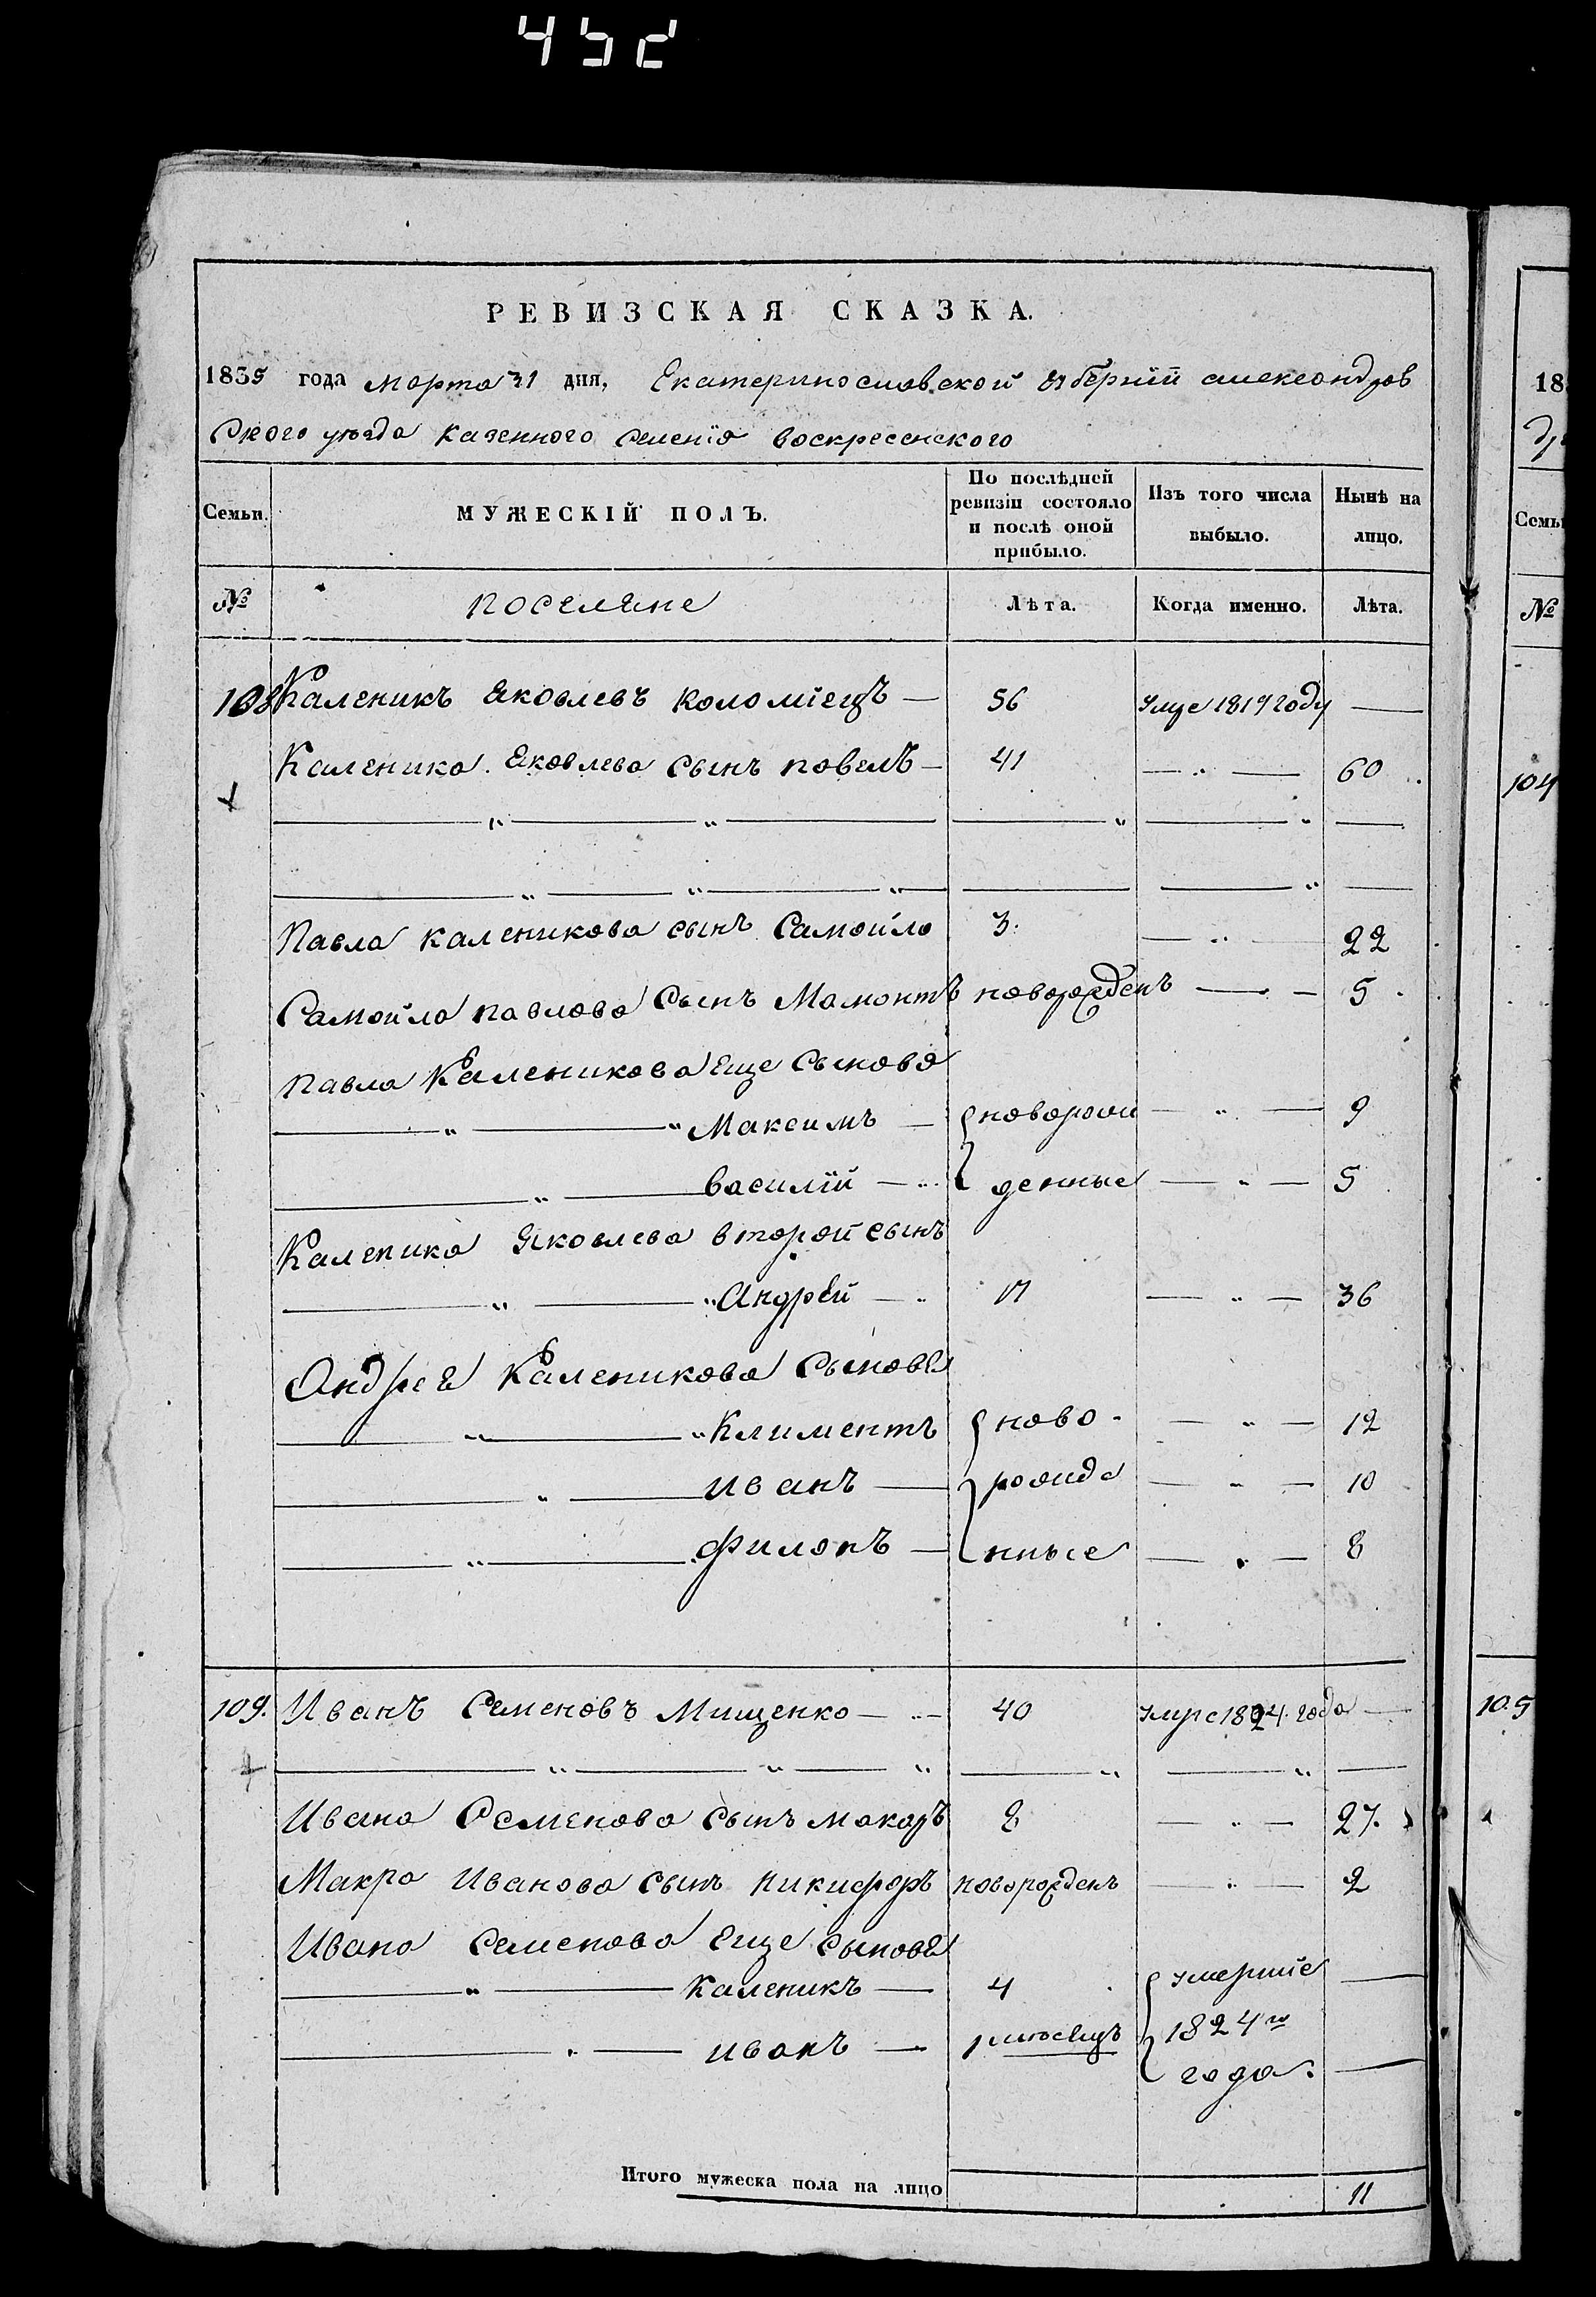 452
РЕВИЗСКАЯ СКАЗКА.
1835 года марта 31 дня, Екатеринославской губернїй александров
Ского уѣзда казенного Селенїя воскресенского
Семьи. МУЖЕСКІЙ ПОЛЪ. По послѣдней ревизіи состояло и послѣ оной прибыло. Изъ того числа выбыло. Нынѣ на лицо.
№ поселяне Лѣта. Когда именно. Лѣта.
108 Каленикъ Яковлевъ Коломїецъ — 56 умре 1819 году —
Каленика Яковлева Сынъ повелъ — 41 — " — 60
Павла Каленикова сынъ Самойло 3. — " — 22
Самойла павлова Сынъ Мамонтъ новорожденъ — " — 5
Павла Каленикова Еще Сынова
Максимъ — новорож — " — 9
Василїй — денные — " — 5
Каленика Яковлева второй сынъ
Андрей — 17 — " — 36
Андрея Каленикова Сыновя
Климентъ ново - — " — 12
Иванъ — рожде — " — 10
Филопъ — нные — " — 8
109. Иванъ Семеновъ Мищенко — 40 умре 1824. года —
Ивана Семенова Сынъ макаръ 8 — " — 27.
Макра Иванова сынъ Никифоръ новорожденъ — " — 2
Ивана Семенова Еще Сыновя
Каленикъ — 4 умершїе —
Иванъ — 1 мѣсецъ 1824го
года. —
Итого мужеска пола на лицо 11
18
Семьи
№
104
105